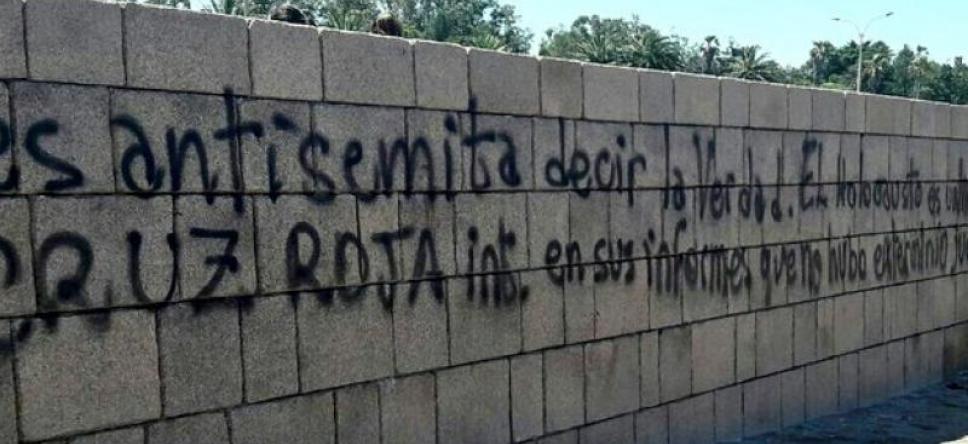 es antisemita decir la Verdad. EL Holoqusto es un
CRUZ ROJA int. en sus informes que no hubo exterminio